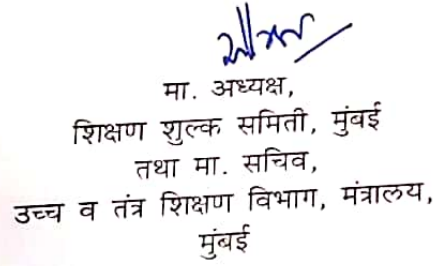 मा. अध्यक्ष,
शिक्षण शुल्क समिती, मुंबई
तथा मा. सचिव,
उच्च व तंत्र शिक्षण विभाग, मंत्रालय,
मुंबई